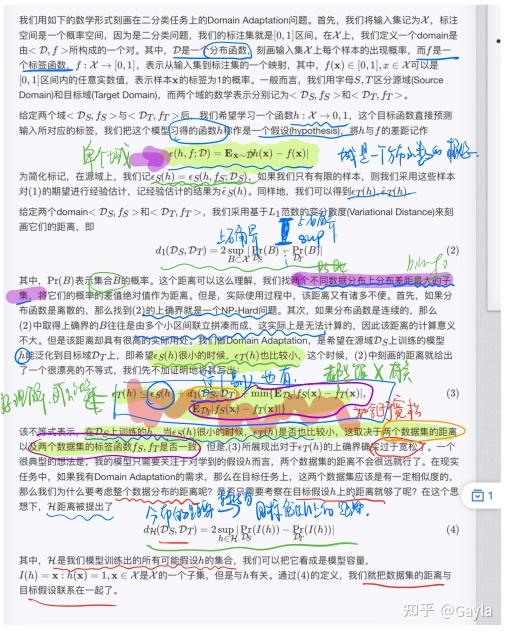 我们用如下的数学形式刻画在二分类任务上的Domain Adaptation问题。首先，我们将输入集记为𝒳，标注
空间是一个概率空间，因为是二分类问题，我们的标注集就是[0,1]区间。在𝒳上，我们定义一个domain是
由<𝒟, f>所构成的一个对。其中，𝒟是一个分布函数，刻画输入集𝒳上每个样本的出现概率，而f是一
个标签函数，f : 𝒳 → [0,1]，表示从输入集到标注集的一个映射，其中，f(x) ∈ [0,1], x ∈ 𝒳可以是
[0,1]区间内的任意实数值，表示样本x的标签为1的概率。一般而言，我们用字母S, T区分源域(Source
Domain)和目标域(Target Domain)，而两个域的数学表示分别记为<𝒟S, fS>和<𝒟T, fT>。
给定两个域<𝒟S, fS>与<𝒟T, fT>后，我们希望学习一个函数h : 𝒳 → 0,1，这个目标函数直接预测
输入所对应的标签，我们把这个模型习得的函数h称作是一个假设(hypothesis)，将h与f的差距记作
单个域 ϵ(h, f; 𝒟) = E x∼𝒟 |h(x) − f(x)|
为简化标记，在源域上，我们记ϵS(h) = ϵS(h, fS; 𝒟S)，如果我们只有有限的样本，则我们采用这些样本
对(1)的期望进行经验估计，记经验估计的结果为ϵ̂S(h)。同样地，我们可以得到ϵT(h), ϵ̂T(h)。
给定两个domain<𝒟S, fS>和<𝒟T, fT>，我们采用基于L1范数的变分散度(Variational Distance)来刻
画它们的距离，即
上确界 sup
d1(𝒟S, 𝒟T) = 2 sup B⊂𝒳 |Pr 𝒟S (B) − Pr 𝒟T (B)| (2)
其中，Pr(B)表示集合B的概率。这个距离可以这么理解，我们找两个不同数据分布上分布差距最大的子
集，将它们的概率的差值绝对值作为距离。但是，实际使用过程中，该距离又有诸多不便。首先，如果分
布函数是离散的，那么找到(2)的上确界就是一个NP-Hard问题。其次，如果分布函数是连续的，那么
(2)中取得上确界的B往往是由多个小区间联立拼凑而成，这实际上是无法计算的，因此该距离的计算意义
不大。但是该距离却具有很高的实际用处，我们做Domain Adaptation，是希望在源域𝒟S上训练的模型
h能泛化到目标域𝒟T上，即希望ϵS(h)很小的时候，ϵT(h)也比较小，这个时候，(2)中刻画的距离就给出
了一个很漂亮的不等式，我们先不加证明地将其写出：
ϵT(h) ≤ ϵS(h) + d1(𝒟S, 𝒟T) + min{E𝒟S|fS(x) − fT(x)|,
E𝒟T|fS(x) − fT(x)|} (3)
该不等式表示，在𝒟S上训练的h，当ϵS(h)很小的时候，ϵT(h)是否也比较小，这取决于两个数据集的距离
以及两个数据集的标签函数fS, fT是否一致。但是,(3)所展现出对于ϵT(h)的上确界确实过于宽松了。一个
很典型的想法是，我的模型只需要关注于对学到的假设h而言，两个数据集的距离不会很远就行了。在现实
任务中，如果我有Domain Adaptation的需求，那么在目标任务上，这两个数据集应该是有一定相似度的，
那么我们为什么要考虑整个数据分布的距离呢？是否只需要考察在目标假设h上的距离就够了呢？在这个思
想下，ℋ距离被提出了
dℋ(𝒟S, 𝒟T) = 2 sup h∈ℋ |Pr 𝒟S (I(h)) − Pr 𝒟T (I(h))| (4)
其中，ℋ是我们模型训练出的所有可能假设h的集合，我们可以把它看成是模型容量，
I(h) = x : h(x) = 1, x ∈ 𝒳是𝒳的一个子集，但是与h有关。通过(4)的定义，我们就把数据集的距离与
目标假设联系在一起了。
1
知乎 @Gayla